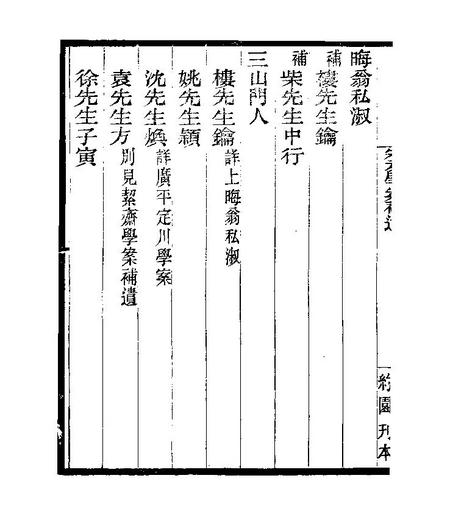 約園刊本
晦翁私淑
補樓先生鑰
補柴先生中行
三山門人
樓先生鑰詳上晦翁私淑
姚先生頴
沈先生煥詳廣平定川學案
袁先生方別見絜齋學案補遺
徐先生子寅